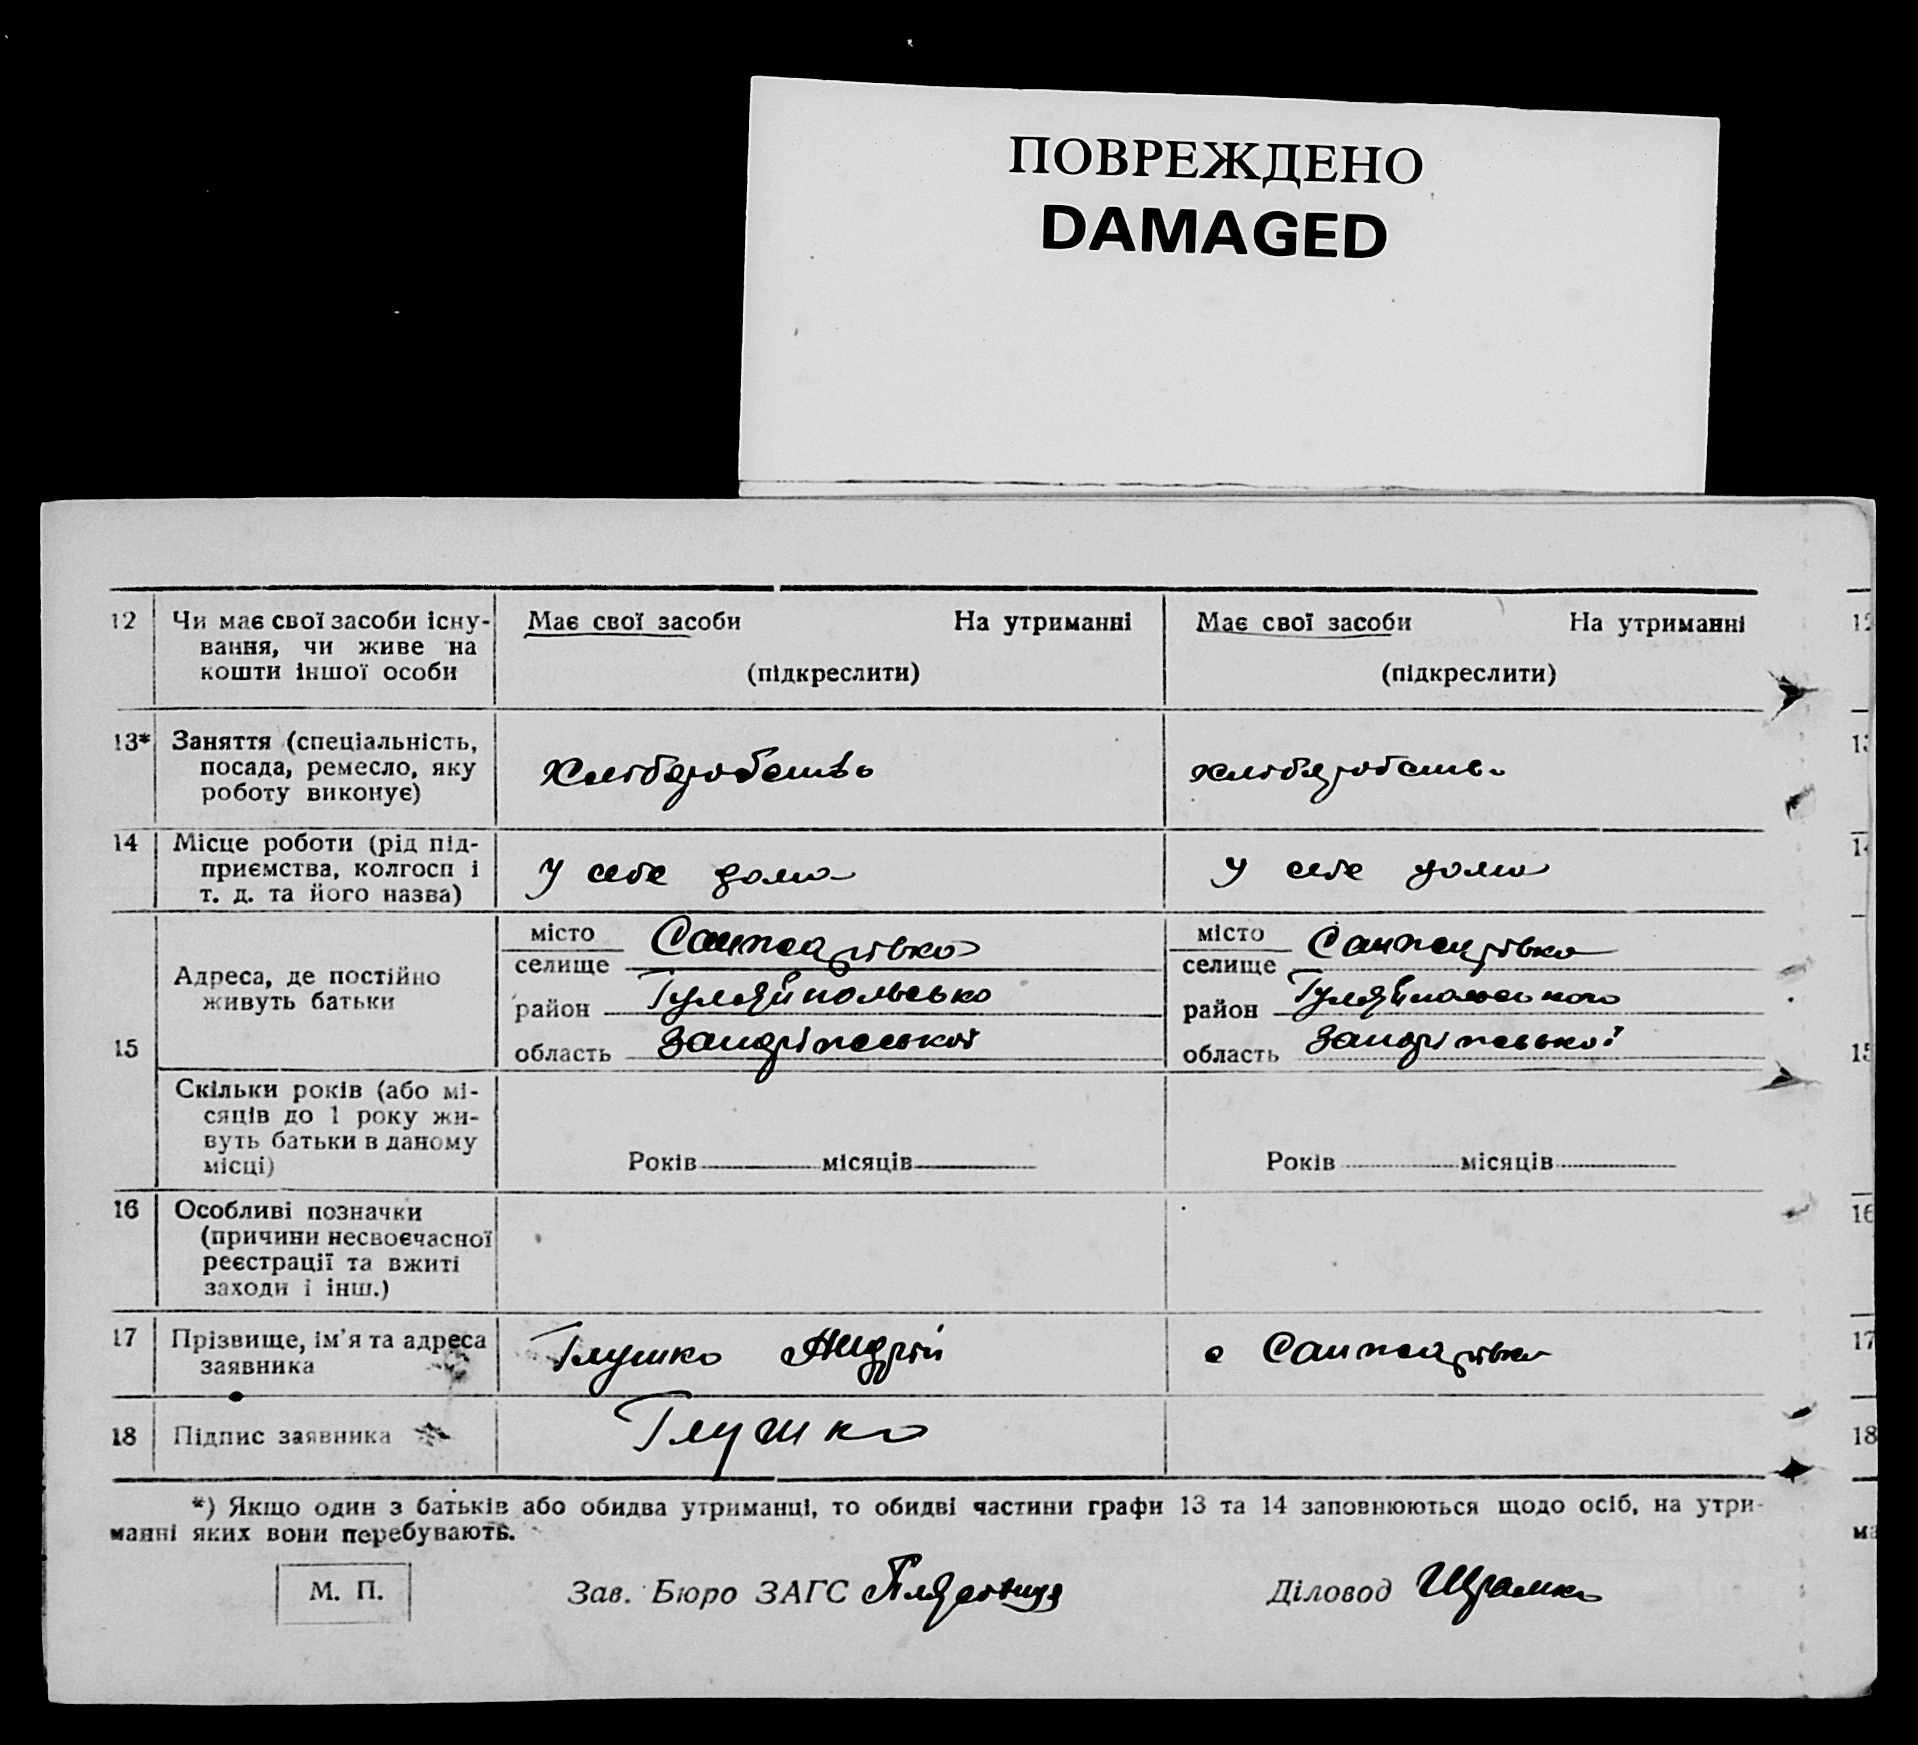 ПОВРЕЖДЕНО
DAMAGED
12 Чи має свої засоби існу- Має свої засоби На утриманні Має свої засоби На утриманні 12
вання, чи живе на
кошти іншої особи (підкреслити) (підкреслити)
13* Заняття (спеціальність, 13
посада, ремесло, яку хліборобство хліборобство
роботу виконує)
14 Місце роботи (рід під- 14
приємства, колгосп і у себе дома у себе дома
т. д. та його назва)
місто Санжарівка місто Санжарівка
Адреса, де постійно селище селище
живуть батьки район Гуляйпольсько район Гуляйпольського
15 область Запоріжської область Запоріжської 15
Скільки років (або мі-
сяців до 1 року жи-
вуть батьки в даному
місці) Років місяців Років місяців
16 Особливі позначки 16
(причини несвоєчасної
реєстрації та вжиті
заходи і інш.)
17 Прізвище, ім'я та адреса Глушко Андрій с Санжарівка 17
заявника
18 Підпис заявника Глушко 18
*) Якщо один з батьків або обидва утриманці, то обидві частини графи 13 та 14 заповнюються щодо осіб, на утри-
манні яких вони перебувають. ма
М. П. Зав. Бюро ЗАГС Діловод Шрамко